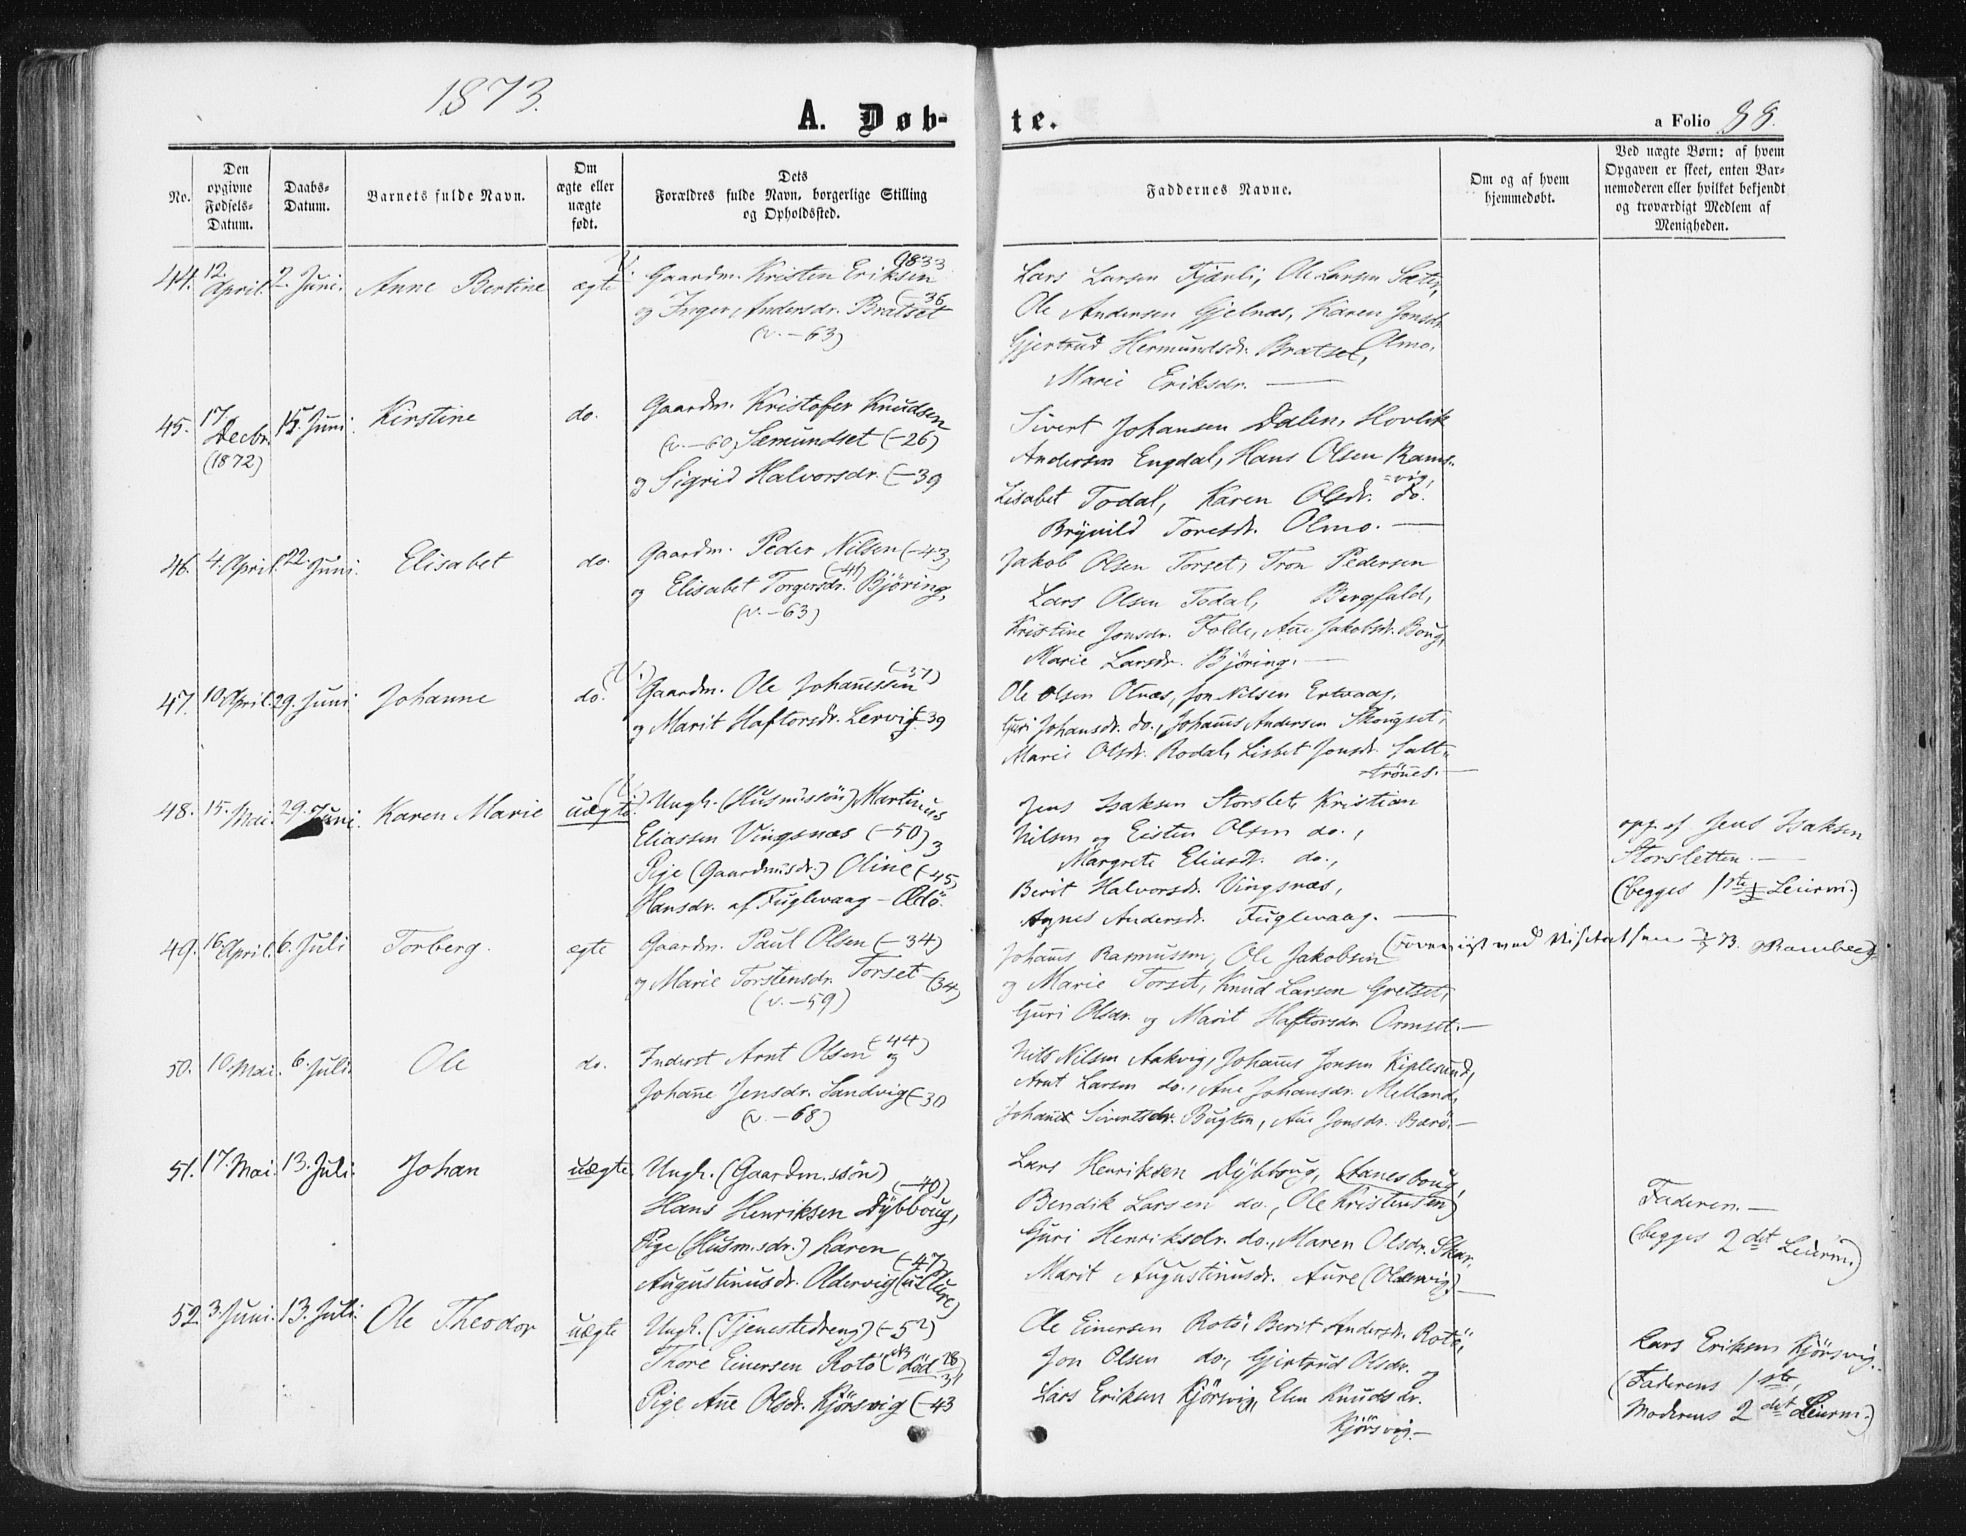 1873.
A. Døb-
te.
a Folio 88.
No.
Den opgivne Fødsels-Datum.
Daabs-Datum.
Barnets fulde Navn.
Om ægte eller uægte født.
Dets Forældres fulde Navn, borgerlige Stilling og Opholdssted.
Faddernes Navne.
Om og af hvem hjemmedøbt.
Ved uægte Børn: af hvem Opgaven er skeet, enten Barnemoderen eller hvilket bekjendt og troværdigt Medlem af Menigheden.
44. 12. April. 2. Juni. Anne Bertine ægte
Gaardm. Kristen Eriksen (1833
og Inger Andersdr. Bratset (-36
(v. -63)
Lars Larsen Fjænli, Ole Larsen Sæter,
Ole Andersen Gjelnæs, Karen Jonsdr.
Gjertrud Hermundsdr. Bratset, Olmo.
Marie Eriksdr. —
45. 17 Decbr. (1872) 15. Juni. Kirstine do.
Gaardm. Kristofer Knudsen
(v. -60) Sæmundset (-26)
og Sigrid Halvorsdr. (-39
Sivert Johansen Dalen, Hovlik
Andersen Engdal, Hans Olsen Rams-
=vig,
Lisabet Todal, Karen Olsdr. do.
Brynild Toresdr. Olmo. —
46. 4. April. 22. Juni. Elisabet do.
Gaardm. Peder Nilsen (-43)
og Elisabet Torgersdr. (-41) Björing,
(v. -63)
Jakob Olsen Torset, Tron Pedersen
Lars Olsen Todal, Bergfald,
Kristine Jonsdr. Folde, Ane Jakobsdr. Boug,
Marie Larsdr. Björing. —
47. 10. April. 29. Juni Johanne do.
Gaardm. Ole Johannssen (-37)
og Marit Haftorsdr. Lervig (-39
Ole Olsen Otnæs, Jon Nilsen Ertvaag,
Guri Johansdr. do., Johans Andersen Skougset,
Marie Olsdr. Rodal, Lisbet Jonsdr. Salt-
trönes. —
48. 15. Mai. 29. Juni. Karen Marie uægte.
Ungk. (Husmssön) Martinus
Eliassen Vingsnæs (-50)
Pige (Gaardmsdr.) Oline (-45)
Hansdr. af Fuglevaag - Ædö.
Jens Isaksen Storslet, Kristian
Nilsen og Eisten Olsen do.,
Margrete Eliasdr. do.,
Berit Halvorsdr. Vingsnæs,
Agnes Andersdr. Fuglevaag. —
opg. af Jens Isaksen
Storsletten. —
(begges 1ste Leierm.)
49. 16. April. 6. Juli Torberg. ægte
Gaardm. Paul Olsen (-34)
og Marie Torstensdr. Torset (-34)
(v. -59)
ved Visitatsen 73.
Johans Rasmussen, Ole Jakobsen
og Marie Torset, Knud Larsen Gretset,
Guri Olsdr. og Marit Haftorsdr. Ormset. —
50. 10. Mai. 6. Juli. Ole do.
Inderst Arnt Olsen (-44) og
Johane Jensdr. Sandvig (-30
(v. -68)
Nils Nilsen Aakvig, Johans Jonsen Kiplesund,
Arnt Larsen do., Ane Johansdr. Melland,
Johanne Sivertsdr. Bugten, Ane Jonsdr. Barö. —
51. 17. Mai. 13. Juli. Johan uægte.
Ungk. (Gaardm.ssön)
Hans Henriksen Dybboug, (-40)
Pige (Husm.sdr.) Karen
Augustinusdr. Oldervig (-47) (til Aure)
Lars Henriksen Dybboug, Hanesboug,
Bendik Larsen do., Ole Kristensen
Guri Henriksdr. do., Maren Olsdr. Skar,
Marit Augustinusdr. Aure (Oldervig) —
Faderen. —
(begges 2det Leierm.)
52. 3. Juni. 13. Juli. Ole Theodor uægte
Ungk. (Tjenestedreng) (-52)
Thore Einersen Rotö (död
Pige Ane Olsdr. Kjörsvig (-43
Ole Einersen Rotö, Berit Andersdr. Rotö,
Jon Olsen do., Gjertrud Olsdr. og
Lars Eriksen Kjörsvig, Elen Knudsdr.
Kjörsvig. —
Lars Eriksen Kjörsvig.
(Faderens 1ste,
Moderens 2det Leierm.)